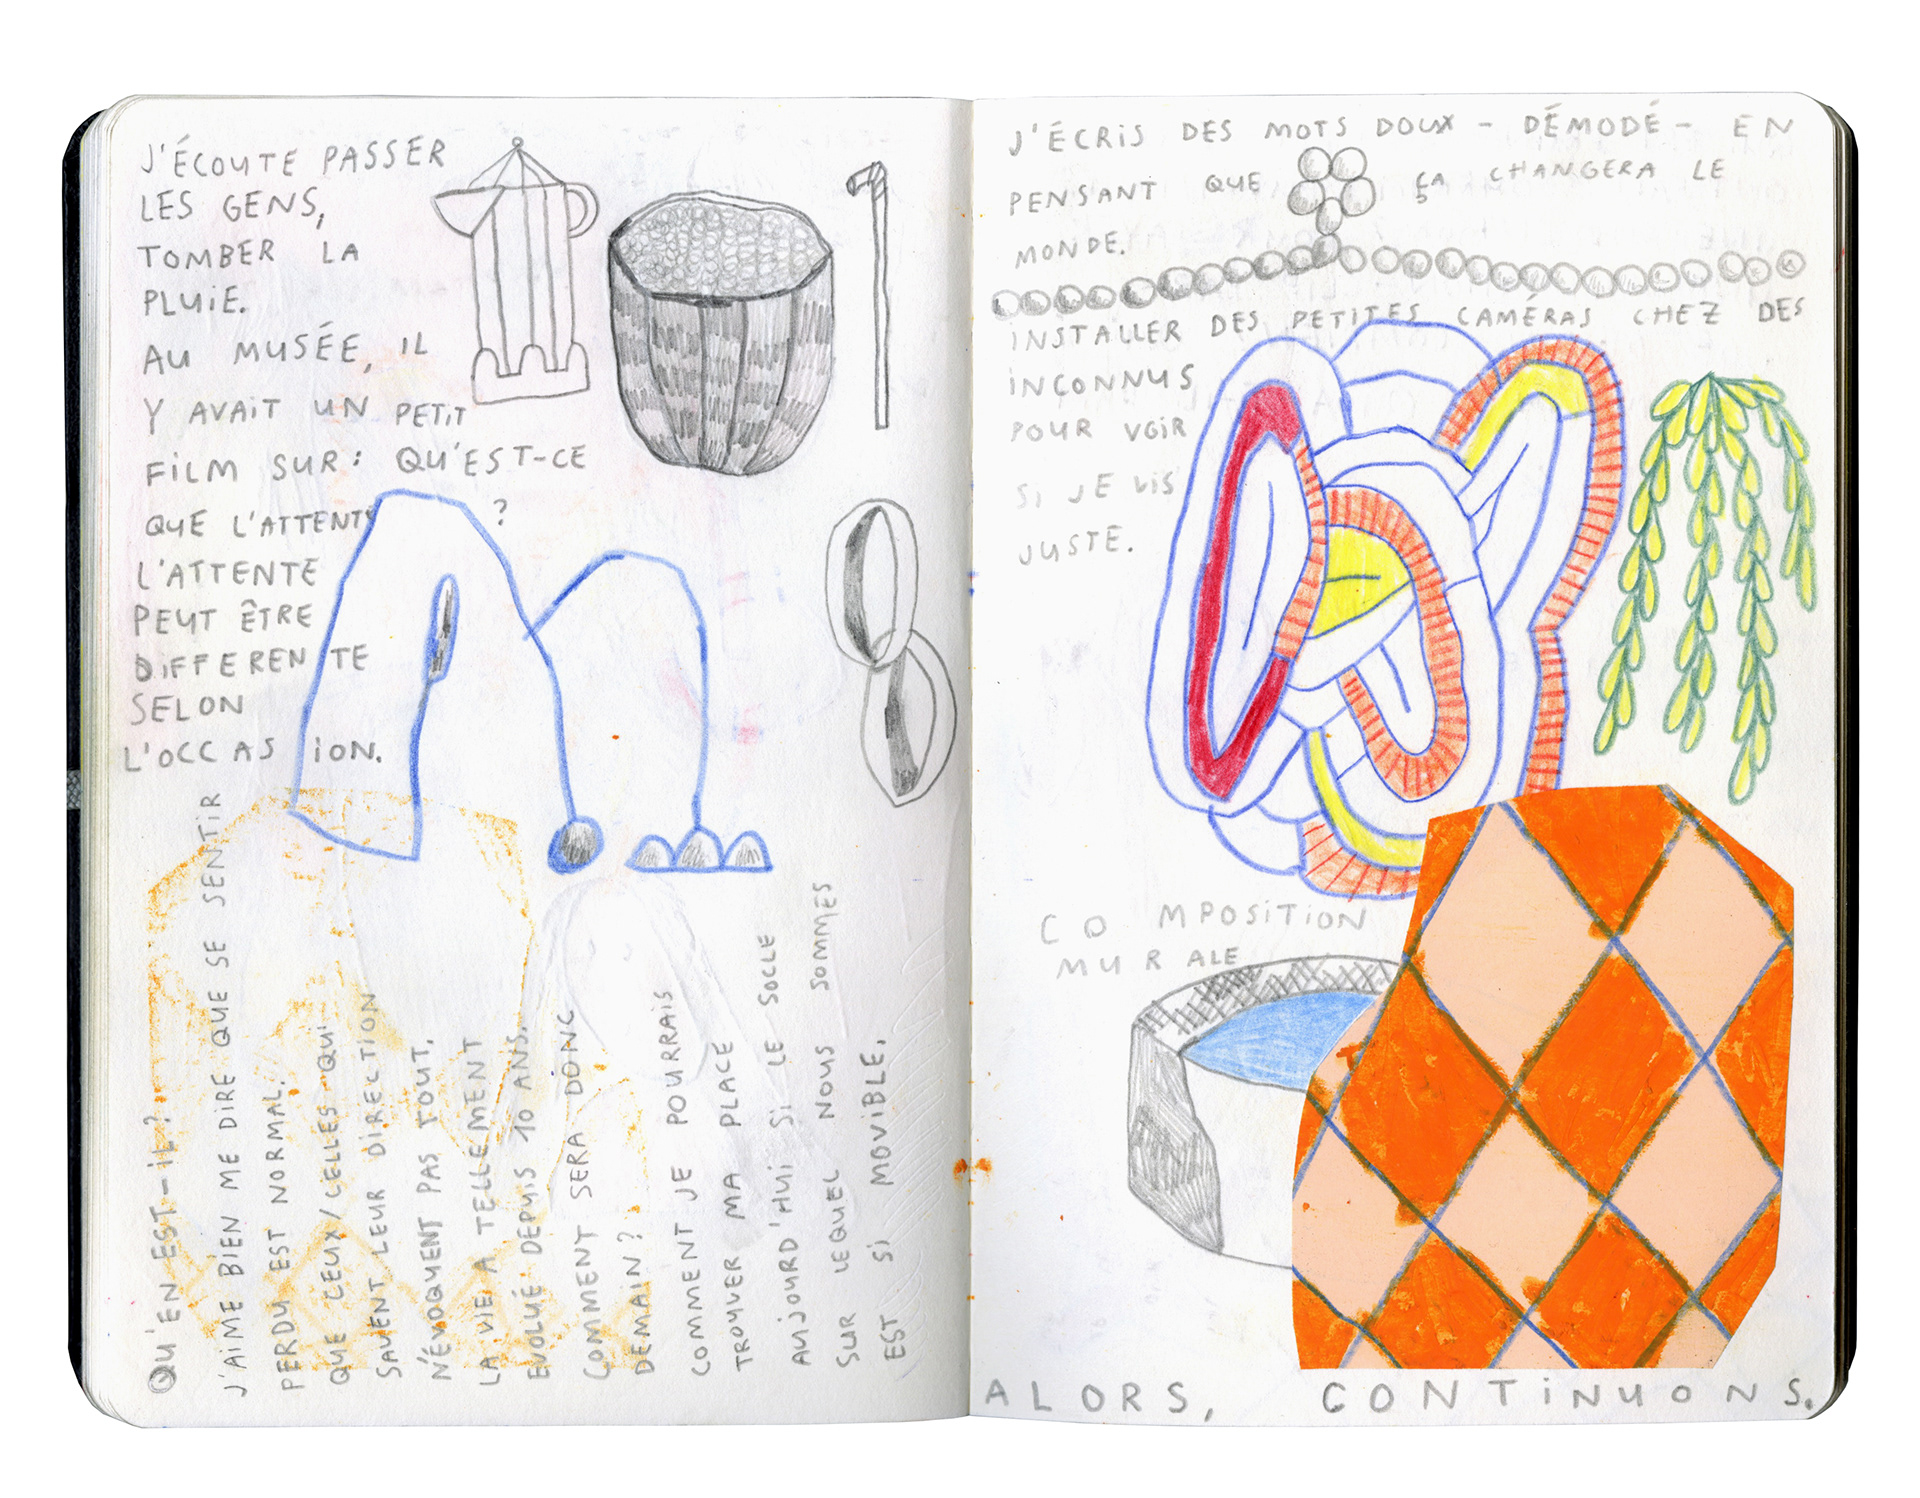 J'ÉCOUTE PASSER
LES GENS,
TOMBER LA
PLUIE.
AU MUSÉE, IL
Y AVAIT UN PETIT
FILM SUR: QU'EST-CE
QUE L'ATTENTE ?
L'ATTENTE
PEUT ÊTRE
DIFFERENTE
SELON
L'OCCASION.
QU'EN EST-IL?
J'AIME BIEN ME DIRE QUE SE SENTIR
PERDU EST NORMAL.
QUE CEUX/CELLES QUI
SAVENT LEUR DIRECTION
N'ÉVOQUENT PAS TOUT.
LA VIE A TELLEMENT
EVOLUÉ DEPUIS 10 ANS.
COMMENT SERA DONC
DEMAIN?
COMMENT JE POURRAIS
TROUVER MA PLACE
AUJOURD'HUI SI LE SOCLE
SUR LEQUEL NOUS SOMMES
EST SI MOVIBLE.
J'ÉCRIS DES MOTS DOUX - DÉMODÉ - EN
PENSANT QUE ÇA CHANGERA LE
MONDE.
INSTALLER DES PETITES CAMÉRAS CHEZ DES
INCONNUS
POUR VOIR
SI JE VIS
JUSTE.
COMPOSITION
MURALE
ALORS, CONTINUONS.